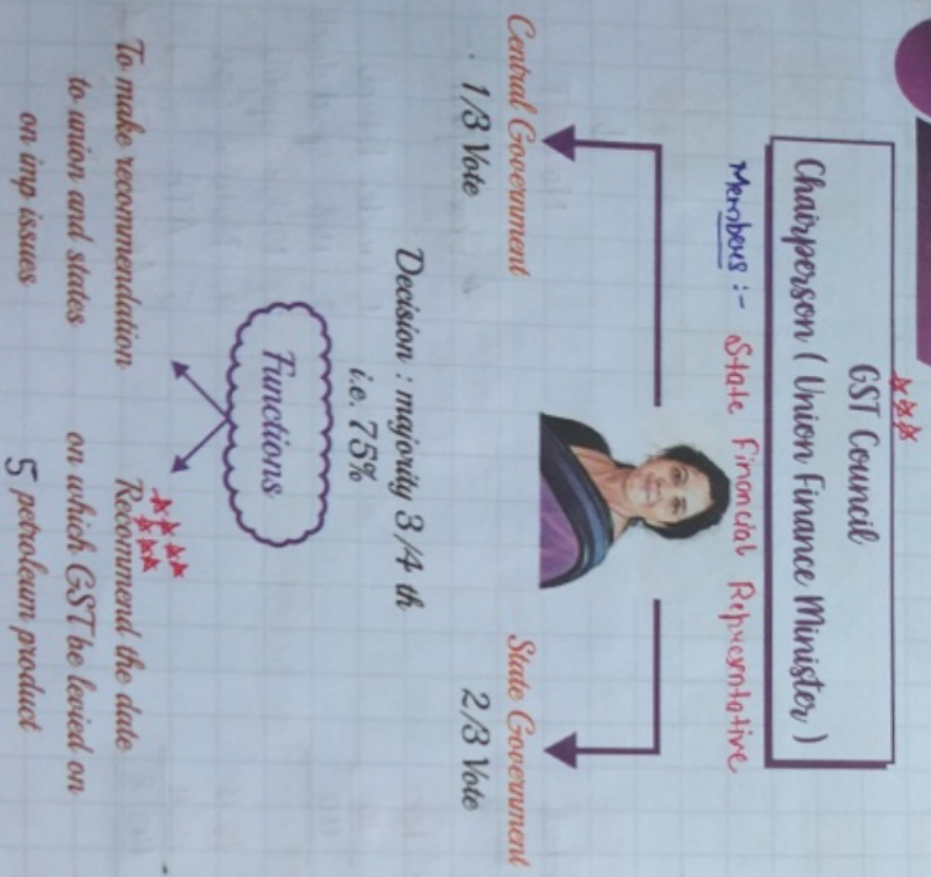 GST Council
Chairperson ( Union Finance Minister )
Members :- State Financial Representative
Central Government
1/3 Vote
State Government
2/3 Vote
Decision : majority 3/4 th
i.e. 75%
Functions
To make recommendation
to union and states
on imp issues
Recommend the date
on which GST be levied on
5 petroleum product